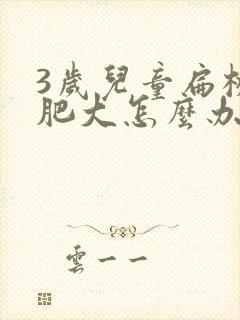 3歲兒童扁桃
肥大怎麼办
雲一一